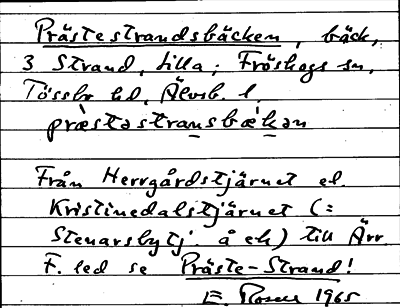 Prästestrandsbäcken, bäck,
3 Strand, Lilla; Fröskogs sn,
Tössbo hd, Älvsb. l
præstastransbækan
Från Herrgårdstjärnet el.
Kristinedalstjärnet (=
Stenarsbytj. å ek) till Ärr.
F. led se Präste-Strand!
E. 1965